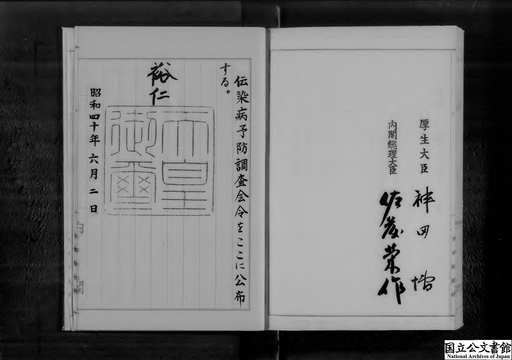 厚生大臣 神田博
内閣総理大臣 佐藤栄作
伝染病予防調査会令をここに公布
する。
裕仁
天皇
御璽
昭和四十年六月二日
国立公文書館
National Archives of Japan